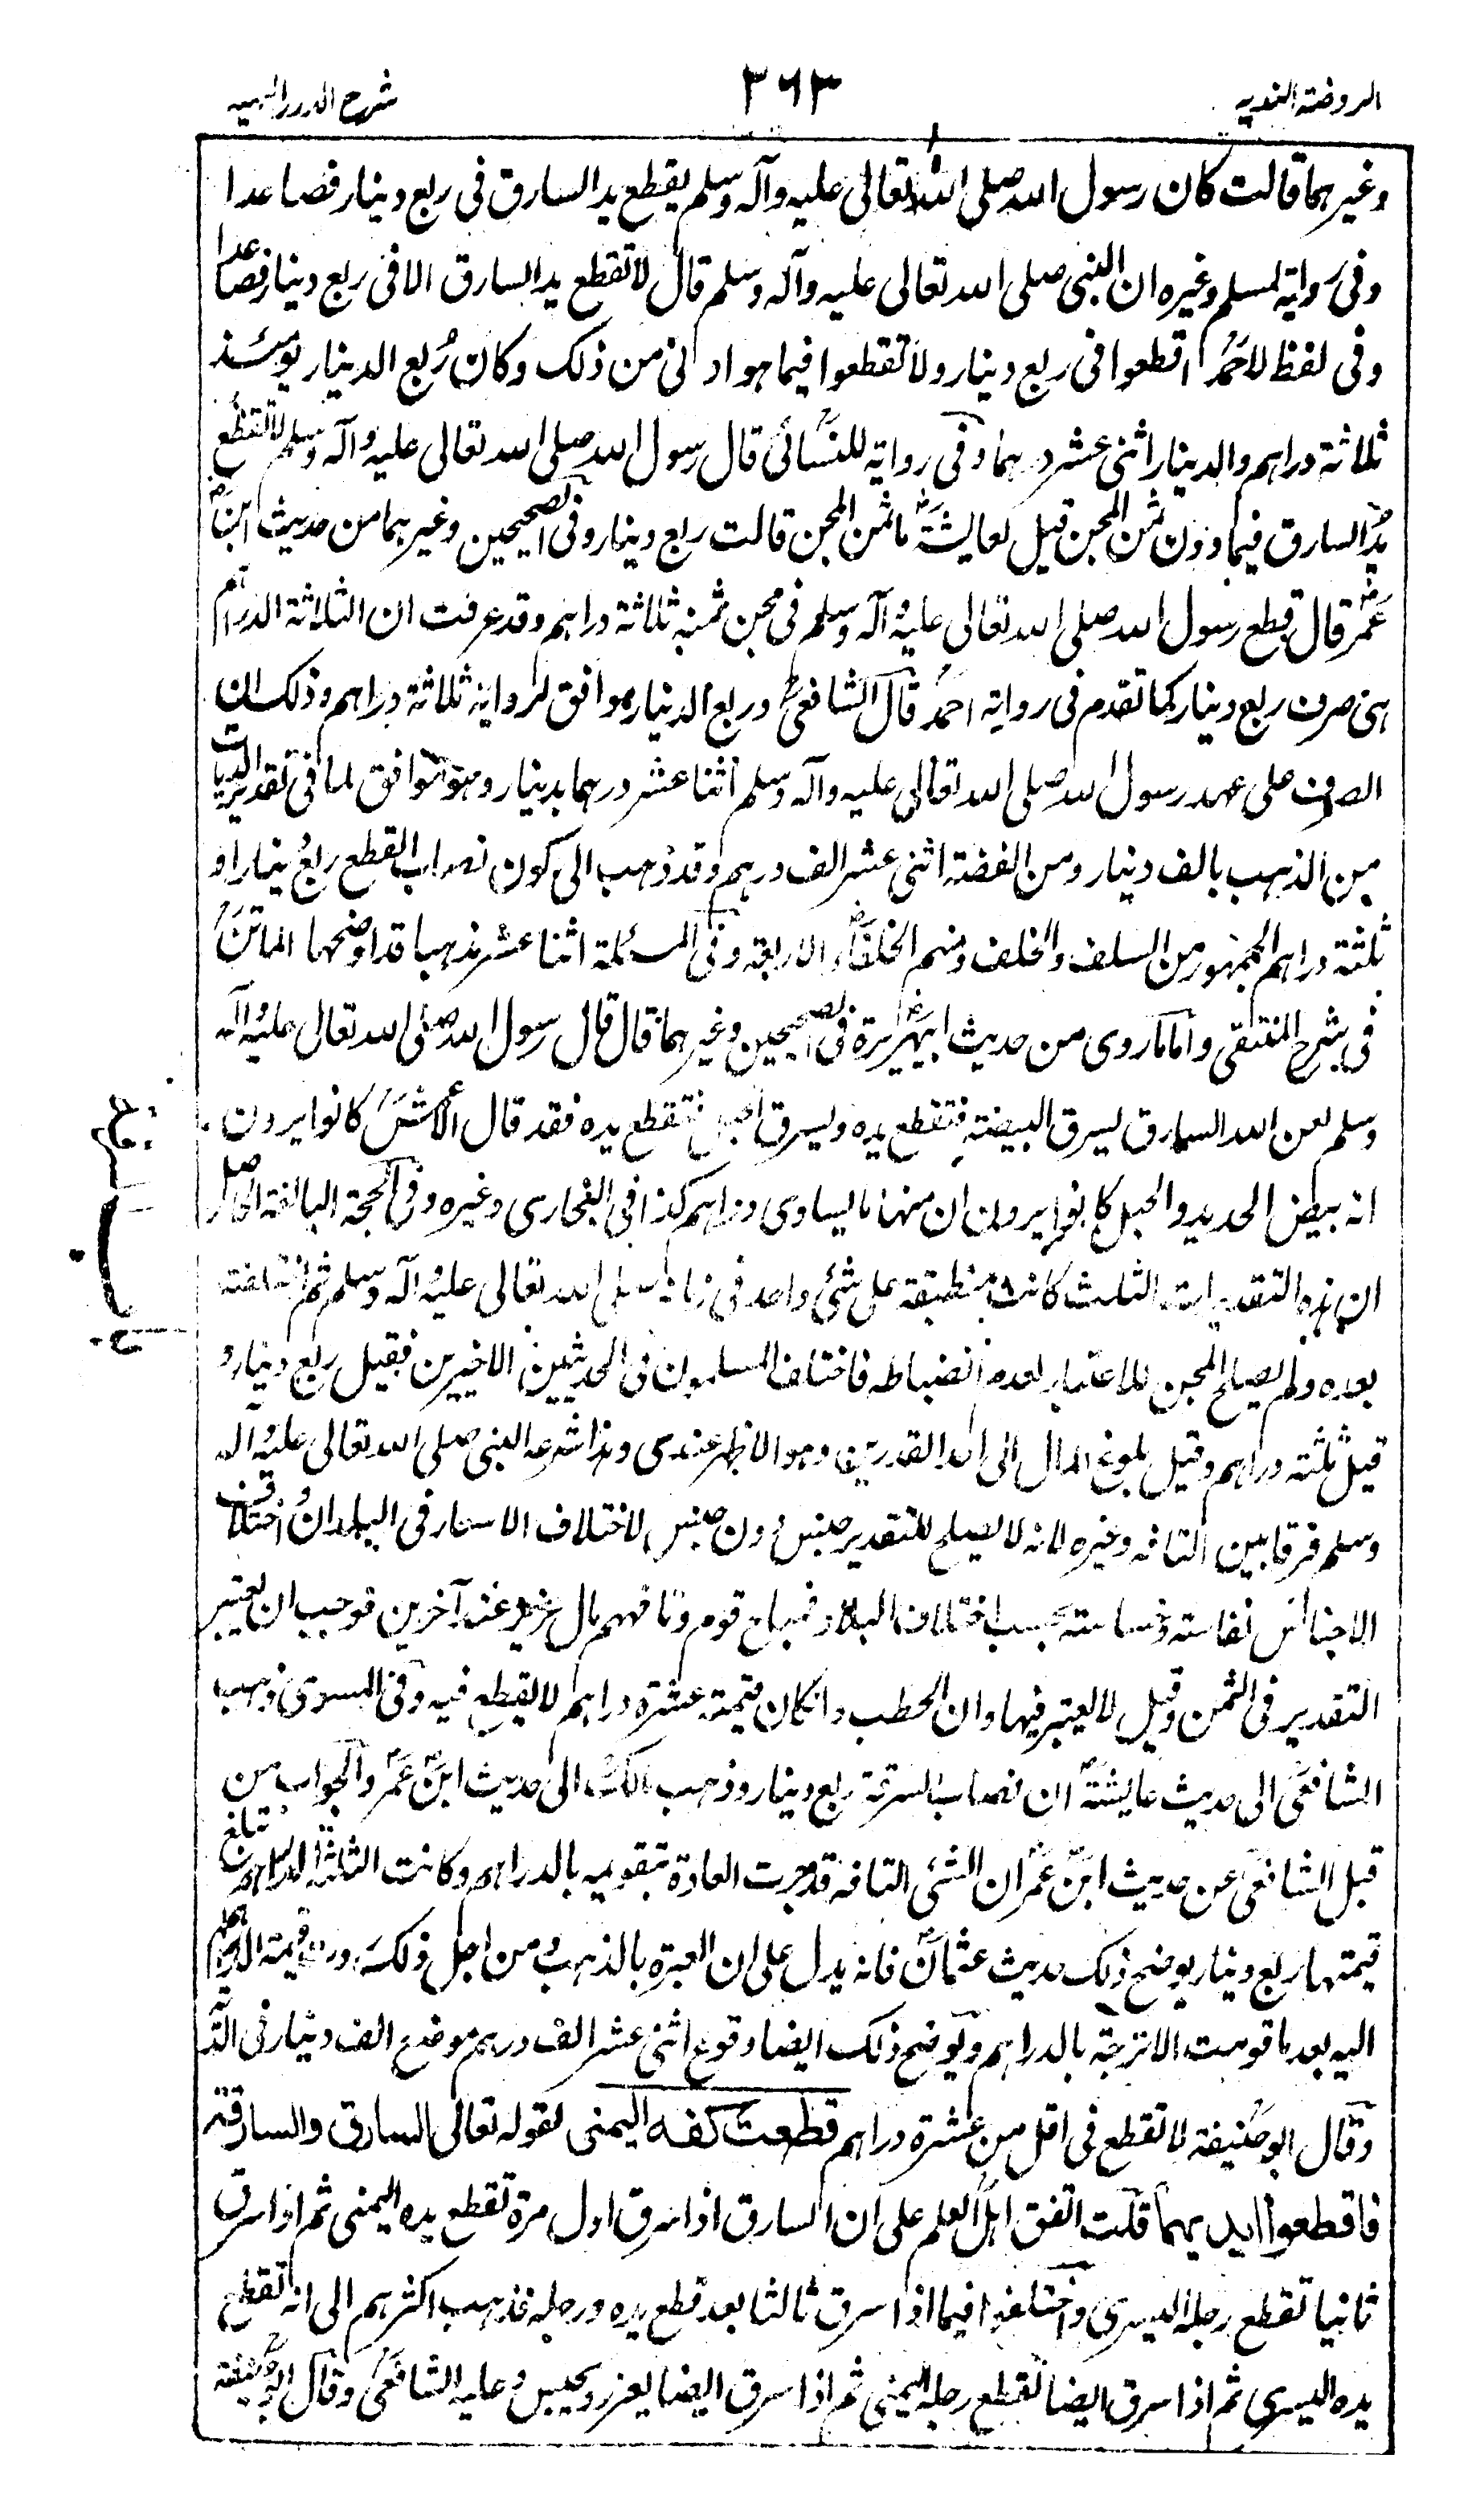 الروضة الندية
٣٦٣
شرح الدرر البهية
وغيرهما قالت كان رسول الله صلى الله تعالى عليه وآله وسلم يقطع يد السارق في ربع دينار فصاعدا
وفي رواية لمسلم وغيره ان النبي صلى الله تعالى عليه وآله وسلم قال لا تقطع يد السارق الا في ربع دينار فصاعدا
وفي لفظ لاحمد اقطعوا في ربع دينار ولا تقطعوا فيما هو ادنى من ذلك وكان ربع الدينار يومئذ
ثلاثة دراهم والدينار اثنى عشر درهما وفي رواية للنسائي قال رسول الله صلى الله تعالى عليه وآله وسلم لا تقطع
يد السارق فيما دون ثمن المجن قيل لعايشة ما ثمن المجن قالت ربع دينار وفي الصحيحين وغيرهما من حديث ابن
عمر قال قطع رسول الله صلى الله تعالى عليه وآله وسلم في مجن ثمنه ثلاثة دراهم وقد عرفت ان الثلاثة الدراهم
هي صرف ربع دينار كما تقدم في رواية احمد قال الشافعي وربع الدينار موافق لرواية ثلاثة دراهم وذلك ان
الصرف على عهد رسول الله صلى الله تعالى عليه وآله وسلم اثنا عشر درهما بدينار وهو موافق لما في تقدير الديات
من الذهب بالف دينار ومن الفضة اثنى عشر الف درهم وقد ذهب الى كون نصاب القطع ربع دينار او
ثلثة دراهم الجمهور من السلف والخلف ومنهم الخلفاء الاربعة وفي المسئلة اثنا عشر مذهبا قد اوضحها الماتن
في شرح المنتقى واما ما روى من حديث ابي هريرة في الصحيحين وغيرهما قال قال رسول الله صلى الله تعالى عليه وآله
وسلم لعن الله السارق يسرق البيضة فتقطع يده ويسرق الحبل فتقطع يده فقد قال الأعمش كانوا يرون
انه بيض الحديد والحبل كانوا يرون ان منها ما يساوى دراهم كذا في البخارى وغيره وفي الحجة البالغة الحاصل
ان هذه التقديرات الثلث كانت منطبقة على شئ واحد في زمانه صلى الله تعالى عليه وآله وسلم ثم اختلفت
بعده ولم يصلح المجن للاعتبار لعدم انضباطه فاختلف المسلمون في الحديثين الاخيرين فقيل ربع دينار و
قيل ثلثة دراهم وقيل بلوغ المال الى احد القدرين وهو الاظهر عندى وهذا شرعه النبي صلى الله تعالى عليه وآله
وسلم فرقا بين التافه وغيره لانه لا يصلح للتقدير جنس دون جنس لاختلاف الاسعار في البلدان واختلاف
الاجناس نفاسة وخساسة بحسب اختلاف البلاد فمباح قوم وتافههم مال عزيز عند آخرين فوجب ان يعتبر
التقدير في الثمن وقيل لا يعتبر فيها وان الحطب وانكان قيمته عشرة دراهم لا يقطع فيه وفي المسوى ذهب
الشافعي الى حديث عايشة ان نصاب السرقة ربع دينار وذهب مالك الى حديث ابن عمر والجواب من
قبل الشافعي عن حديث ابن عمر ان الشئ التافه قد جرت العادة بتقويمه بالدراهم وكانت الثلثة الدراهم تبلغ
قيمتها ربع دينار يوضح ذلك حديث عثمان فانه يدل على ان العبرة بالذهب ومن اجل ذلك رد قيمة الدراهم
اليه بعد ما قومت الاترجة بالدراهم ويوضح ذلك ايضا وقوع اثنى عشر الف درهم موضع الف دينار في الدية
وقال ابو حنيفة لا تقطع في اقل من عشرة دراهم قطعت كفه اليمنى لقوله تعالى السارق والسارقة
فاقطعوا ايديهما قلت اتفق اهل العلم على ان السارق اذا سرق اول مرة تقطع يده اليمنى ثم اذا سرق
ثانيا تقطع رجله اليسرى واختلفوا فيما اذا سرق ثالثا بعد قطع يده ورجله فذهب اكثرهم الى انه تقطع
يده اليسرى ثم اذا سرق ايضا تقطع رجله اليمنى ثم اذا سرق ايضا يعزر ويحبس وعليه الشافعي وقال ابو حنيفة